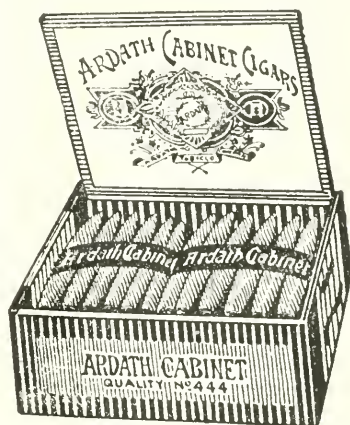 ARDATH CABINET CIGARS
ARDATH
TOBACCO
Ardath Cabine Ardath Cabinet
ARDATH CABINET
QUALITY Nº 444